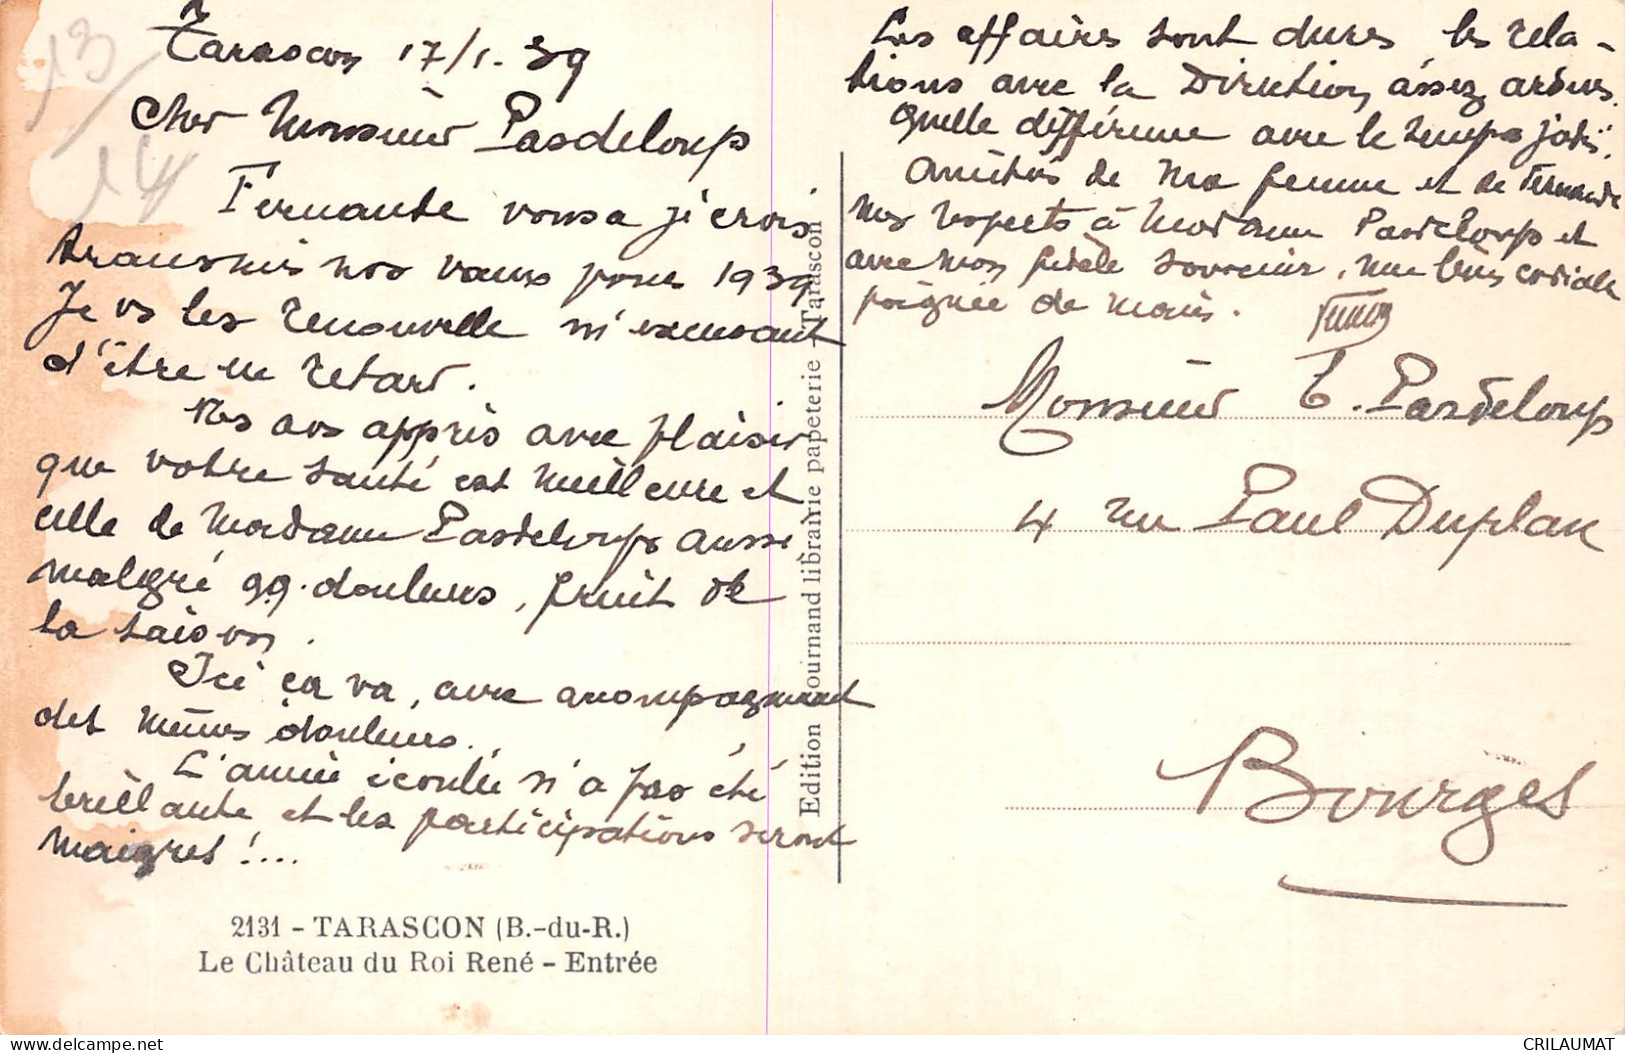 Tarascon 17/1.39
Cher Monsieur Pasdeloup
Fernande vous a je crois
transmis nos vœux pour 1939
Je vs les renouvelle m'excusant
d'être en retard.
Ns avs appris avec plaisir
que votre santé est meilleure et
celle de Madame Pasdeloup aussi
malgré qq. douleurs, fruit de
la saison.
Ici ça va, avec accompagnement
des mêmes douleurs.
L'année écoulée n'a pas été
brillante et les participations seront
maigres!...
2131 - TARASCON (B.-du-R.)
Le Château du Roi René - Entrée
Edition Tournand librairie papeterie - Tarascon
Les affaires sont dures les rela-
tions avec la Direction assez ardues.
Quelle différence avec le temps jadis.
Amitiés de ma femme et de Fernande
mes respects à Madame Pasdeloup et
avec mon fidèle souvenir, une bien cordiale
poignée de main.
Monsieur E. Pasdeloup
4 rue Paul Duplan
Bourges
13
14
CRILAUMAT